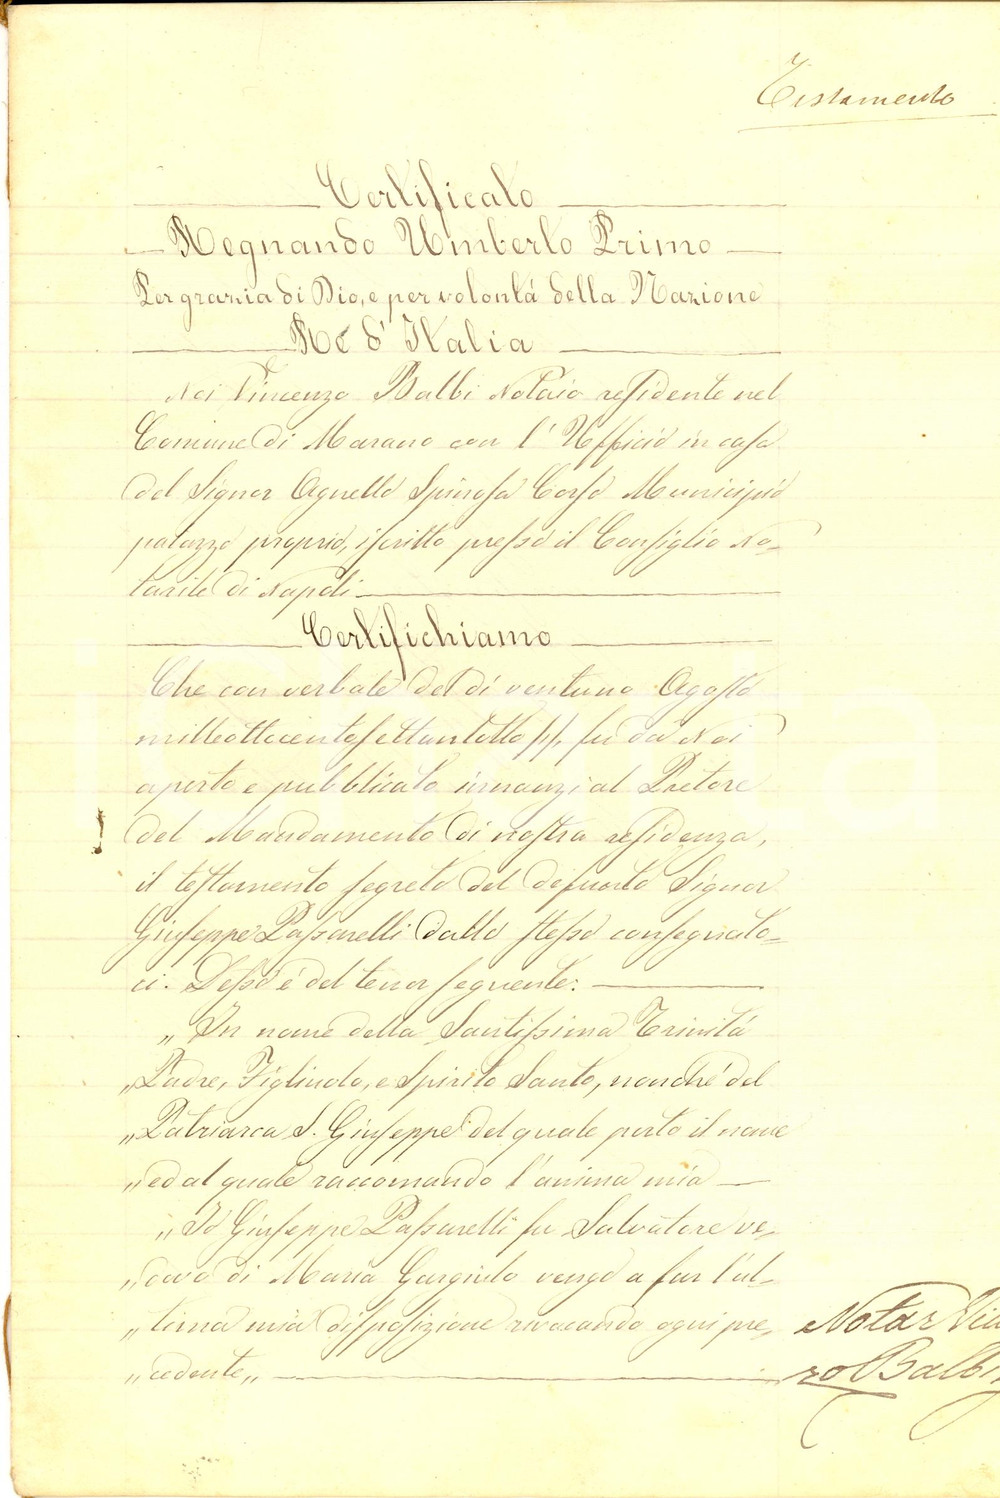 Testamento
Certificato
Regnando Umberto Primo
Per grazia di Dio, e per volontá della Nazione
Ré d'Italia
Noi Vincenzo Balbi Notaio residente nel
Comune di Marano con l'Ufficio in casa
del Signor Agnello Spinosa Corso Municipio
palazzo proprio, iscritto presso il Consiglio No-
tarile di Napoli
Certifichiamo
Che con verbale del dí ventuno Agosto
milleottocentosettantotto, fu da Noi
aperto e pubblicato innanzi al Pretore
del Mandamento di nostra residenza,
il testamento segreto del defunto Signor
Giuseppe Passarelli dallo stesso consegnato-
ci. Desso é del tenor seguente:
„ In nome della Santissima Trinitá
„ Padre, Figliuolo, e Spirito Santo, nonché del
„ Patriarca S. Giuseppe del quale porto il nome
„ ed al quale raccomando l'anima mia
„ Io Giuseppe Passarelli fu Salvatore ve-
„ dovo di Maria Gargiulo vengo a far l'ul-
„ tima mia disposizione revocando ogni pre-
„ cedente „
Notar Vin
zo Balbi